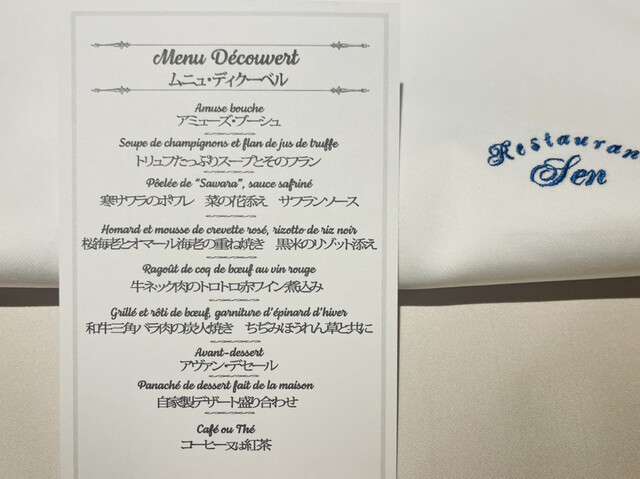 Menu Découvert
ムニュ・ディクーベル
Amuse bouche
アミューズ・ブーシュ
Soupe de champignons et flan de jus de truffe
トリュフたっぷりスープとそのフラン
Pôelée de "Sawara", sauce safriné
寒サワラのポワレ 菜の花添え サフランソース
Homard et mousse de crevette rosé, rizotto de riz noir
桜海老とオマール海老の重ね焼き 黒米のリゾット添え
Ragoût de coq de bœuf au vin rouge
牛ネック肉のトロトロ赤ワイン煮込み
Grillé et rôti de bœuf, garniture d'épinard d'hiver
和牛三角バラ肉の炭火焼き ちぢみほうれん草と共に
Avant-dessert
アヴァン・デセール
Panaché de dessert fait de la maison
自家製デザート盛り合わせ
Café ou Thé
コーヒー又は紅茶
Restauran
Sen